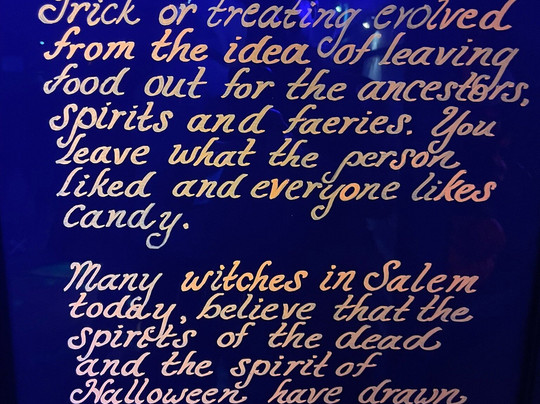 Trick or treating evolved
from the idea of leaving
food out for the ancestors,
spirits and faeries. You
leave what the person
liked and everyone likes
candy.
Many witches in Salem
today, believe that the
spirits of the dead
and the spirit of
Halloween have drawn